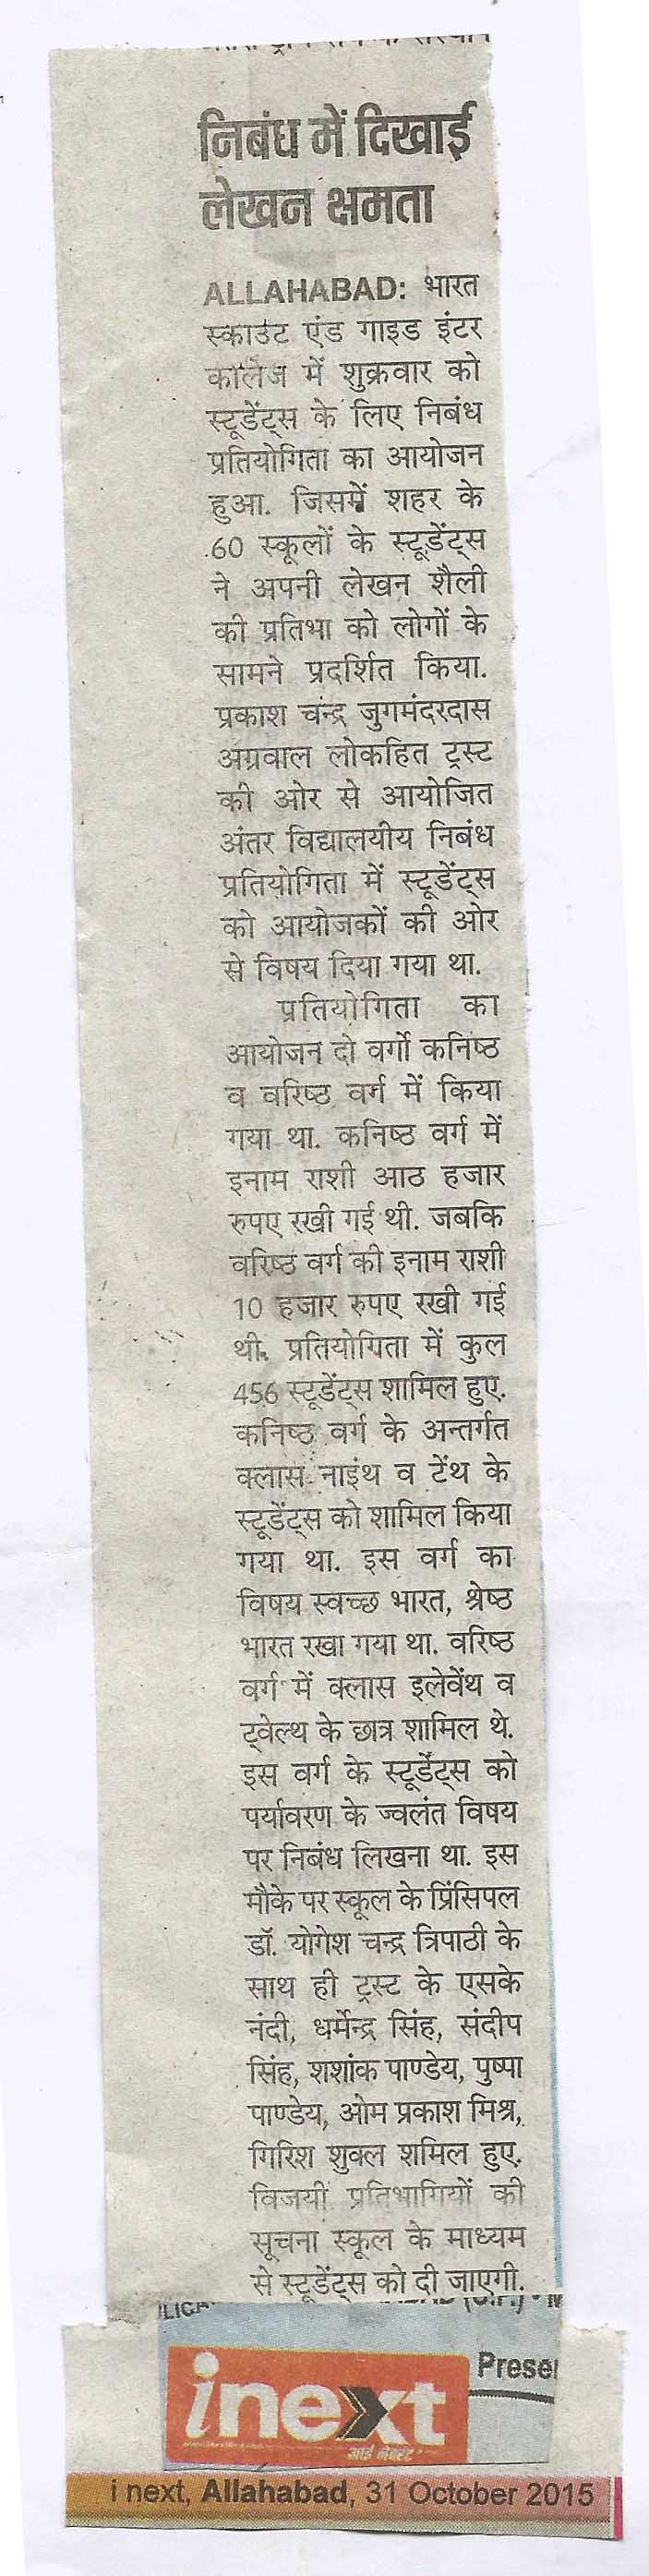 निबंध में दिखाई
लेखन क्षमता
ALLAHABAD: भारत
स्काउट एंड गाइड इंटर
कॉलेज में शुक्रवार को
स्टूडेंट्स के लिए निबंध
प्रतियोगिता का आयोजन
हुआ. जिसमें शहर के
60 स्कूलों के स्टूडेंट्स
ने अपनी लेखन शैली
की प्रतिभा को लोगों के
सामने प्रदर्शित किया.
प्रकाश चन्द्र जुगमंदरदास
अग्रवाल लोकहित ट्रस्ट
की ओर से आयोजित
अंतर विद्यालयीय निबंध
प्रतियोगिता में स्टूडेंट्स
को आयोजकों की ओर
से विषय दिया गया था.
प्रतियोगिता का
आयोजन दो वर्गो कनिष्ठ
व वरिष्ठ वर्ग में किया
गया था. कनिष्ठ वर्ग में
इनाम राशी आठ हजार
रुपए रखी गई थी. जबकि
वरिष्ठ वर्ग की इनाम राशी
10 हजार रुपए रखी गई
थी. प्रतियोगिता में कुल
456 स्टूडेंट्स शामिल हुए.
कनिष्ठ वर्ग के अन्तर्गत
क्लास नाइंथ व टेंथ के
स्टूडेंट्स को शामिल किया
गया था. इस वर्ग का
विषय स्वच्छ भारत, श्रेष्ठ
भारत रखा गया था. वरिष्ठ
वर्ग में क्लास इलेवेंथ व
ट्वेल्थ के छात्र शामिल थे.
इस वर्ग के स्टूडेंट्स को
पर्यावरण के ज्वलंत विषय
पर निबंध लिखना था. इस
मौके पर स्कूल के प्रिंसिपल
डॉ. योगेश चन्द्र त्रिपाठी के
साथ ही ट्रस्ट के एसके
नंदी, धर्मेन्द्र सिंह, संदीप
सिंह, शशांक पाण्डेय, पुष्पा
पाण्डेय, ओम प्रकाश मिश्र,
गिरिश शुक्ल शमिल हुए.
विजयी प्रतिभागियों की
सूचना स्कूल के माध्यम
से स्टूडेंट्स को दी जाएगी.
Presen
inext
आई नेक्स्ट
i next, Allahabad, 31 October 2015